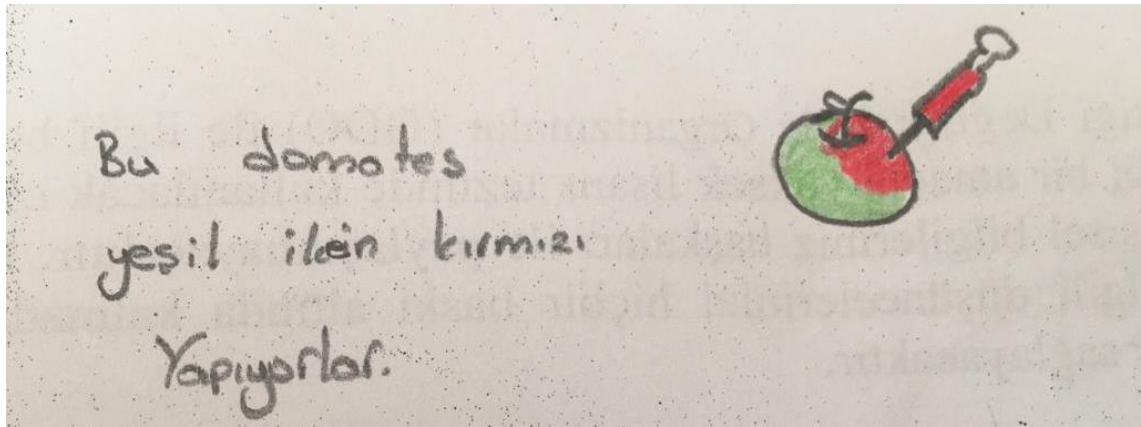 Bu domates
yeşil iken kırmızı
Yapıyorlar.